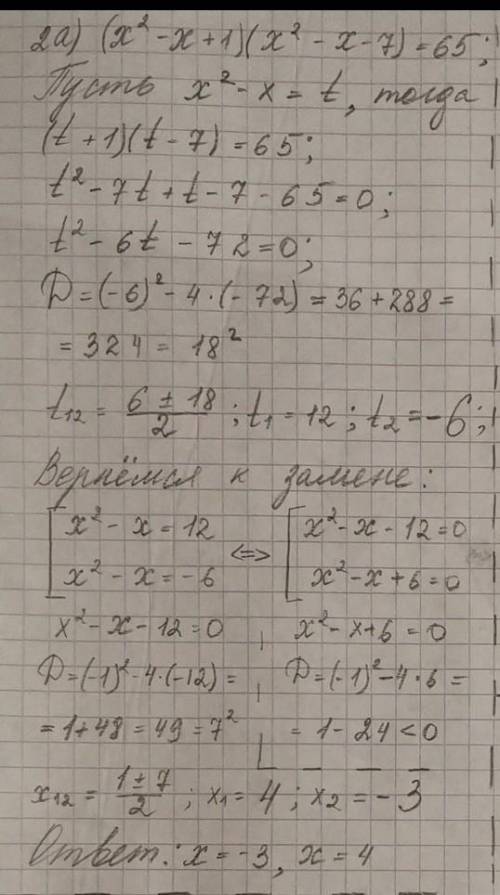 2а) (x² - x + 1)(x² - x - 7) = 65;
Пусть x² - x = t, тогда
(t + 1)(t - 7) = 65;
t² - 7t + t - 7 - 65 = 0;
t² - 6t - 72 = 0;
D = (-6)² - 4 · (-72) = 36 + 288 =
= 324 = 18²
t₁₂ = (6 ± 18)/2 ; t₁ = 12 ; t₂ = -6;
Вернёмся к замене:
[ x² - x = 12 <=> [ x² - x - 12 = 0
x² - x = -6 x² - x + 6 = 0
x² - x - 12 = 0 , x² - x + 6 = 0
D = (-1)² - 4 · (-12) = D = (-1)² - 4 · 6 =
= 1 + 48 = 49 = 7² = 1 - 24 < 0
x₁₂ = (1 ± 7)/2 ; x₁ = 4 ; x₂ = -3
Ответ: x = -3, x = 4